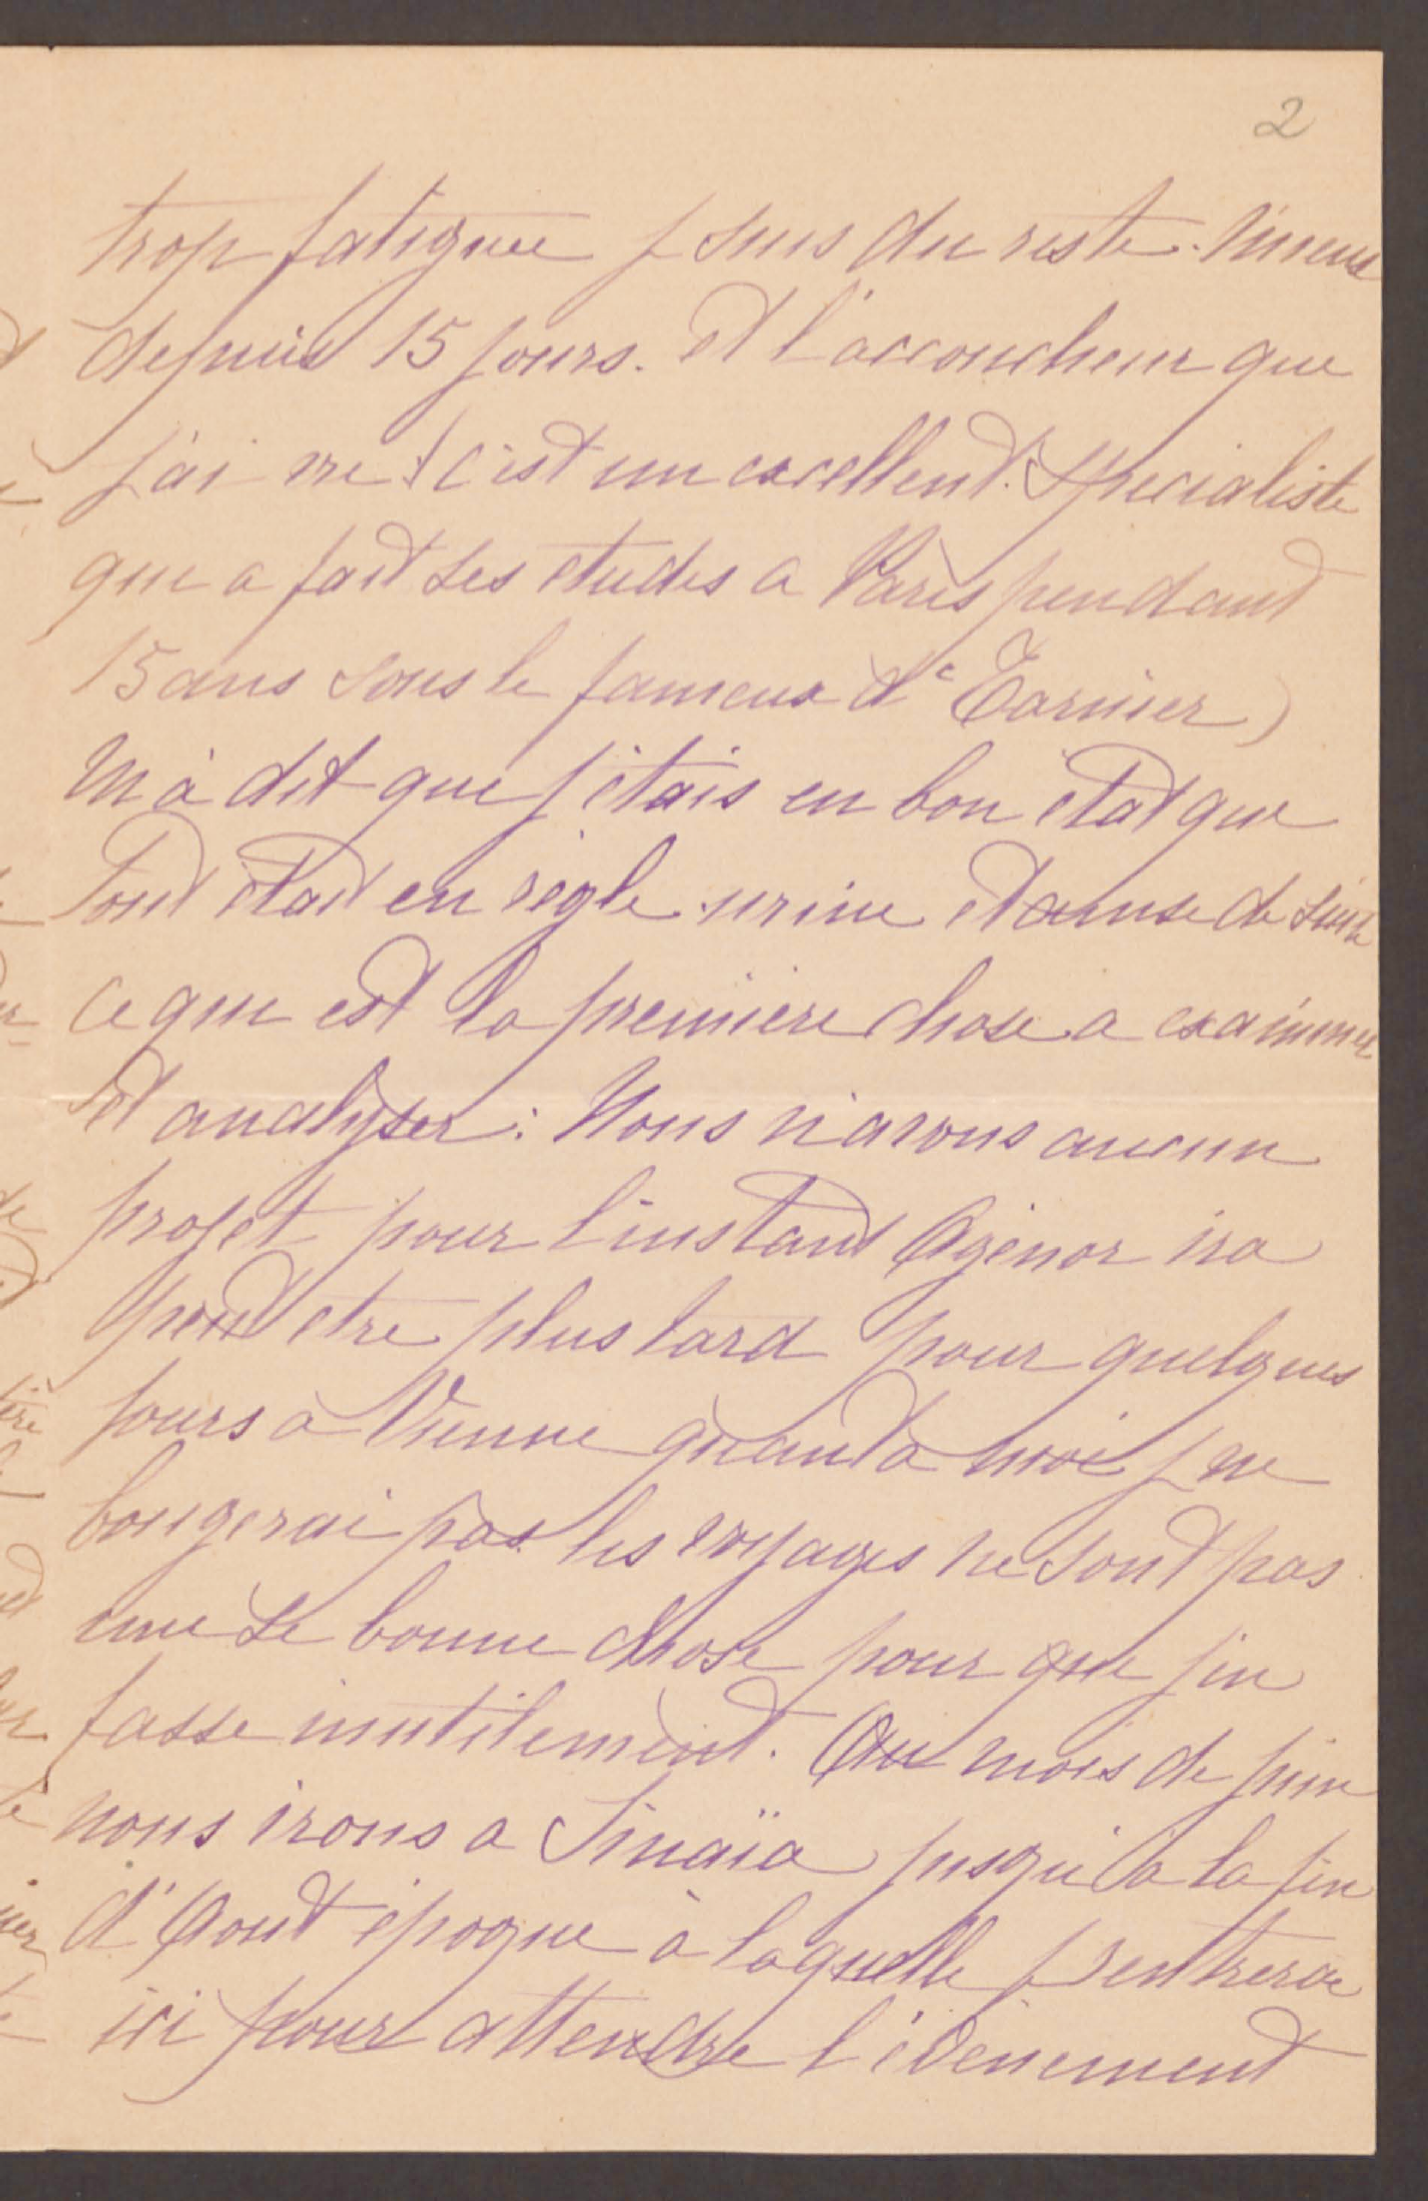 2
trop fatiguée j suis du reste mieux
depuis 15 jours. et l'accoucheur que
j'ai vu (c'est un excellent specialiste
qui a fait ses etudes a Paris pendant
15 ans sous le fameux dr Tarnier)
M'à dit que j'étais en bon état que
Tout était en règle urine et de suite
ce qui est la première chose a examiner
et analyser: Nous n'avons aucun
projet pour l'instant Agénor ira
peut etre plus tard pour quelques
jours à Vienne quant à moi j ne
bougerai pas les voyages ne sont pas
une si bonne chose pour que j'en
fasse inutilement. Au mois de juin
nous irons a Sinaïa jusqu'à la fin
d'Aout époque à laquelle j rentrerai
ici pour attendre l'évènement